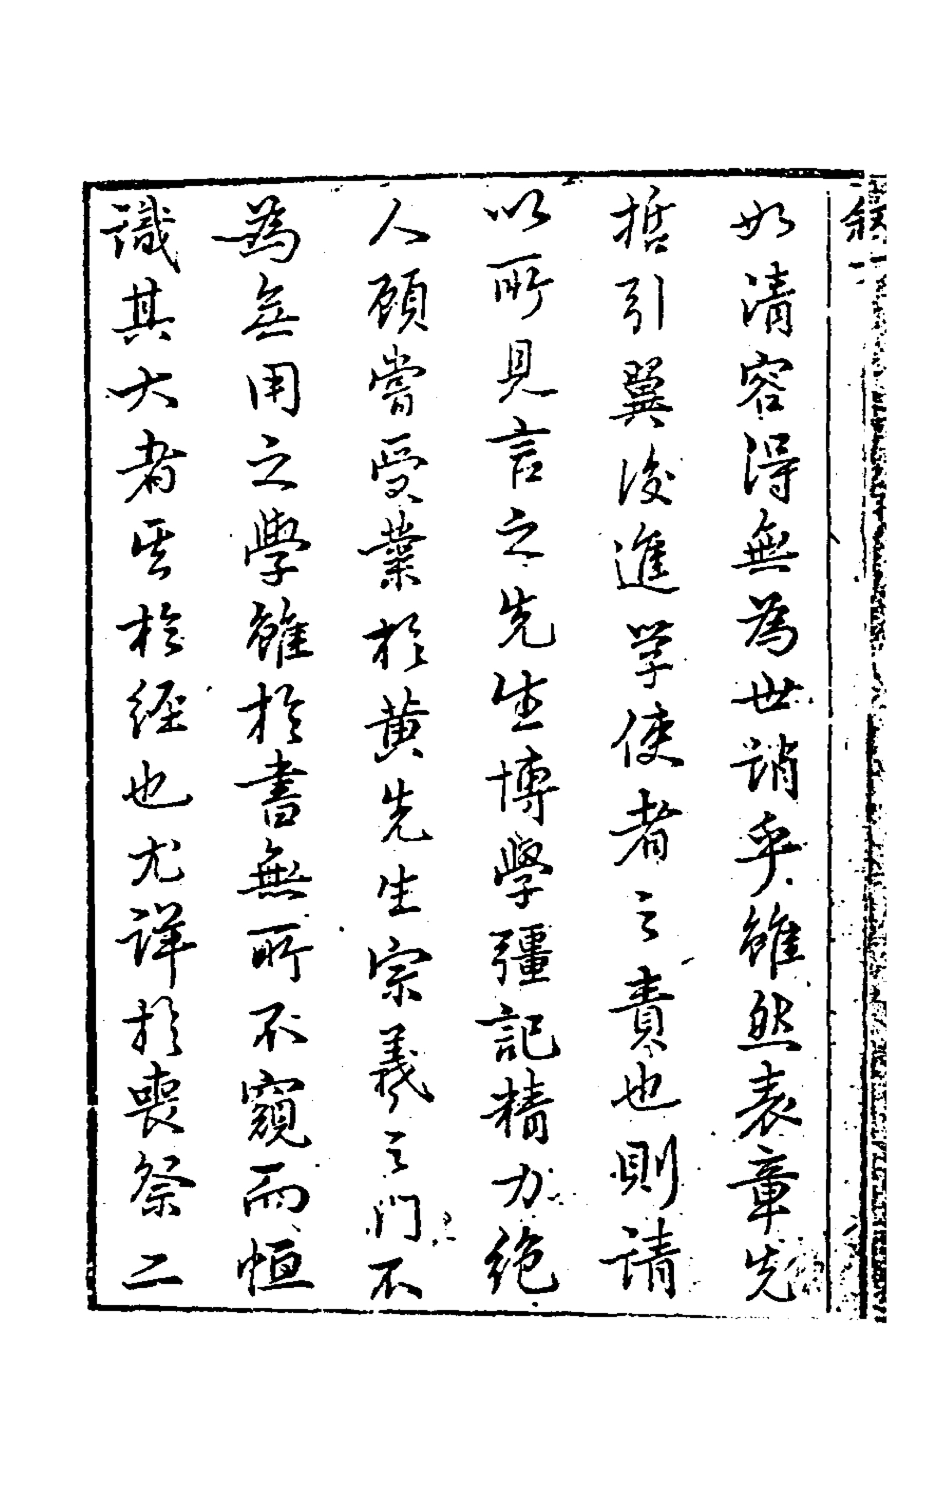 如清容得無為世誚乎雖然表章先
哲引翼後進学使者之責也則請
以所見言之先生博學彊記精力絶
人顧嘗受業於黄先生宗羲之門不
為無用之學雖於書無所不窺而恒
識其大者其於經也尤詳於喪祭二
叙一